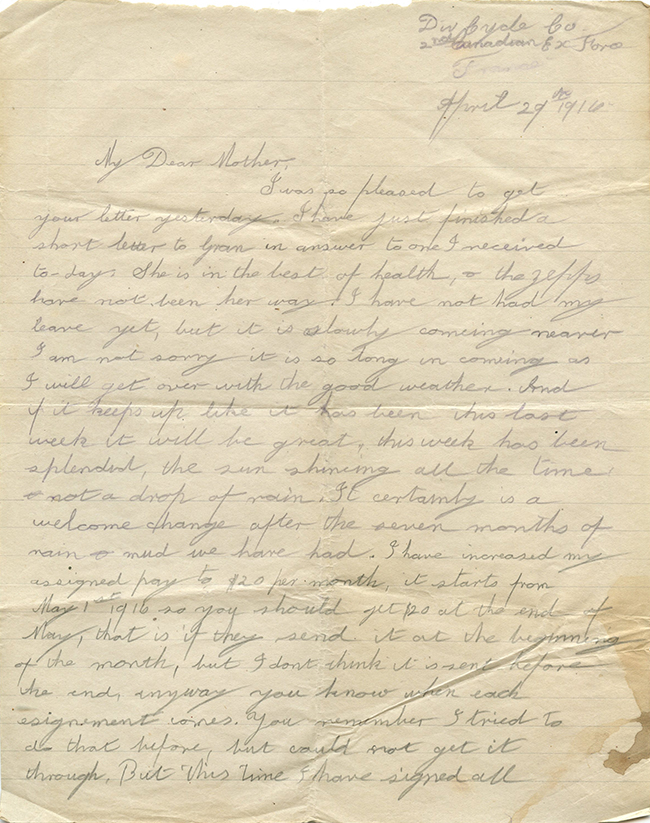 Div Cycle Co
2nd Canadian Ex Force
France
April 29th 1916
My Dear Mother,
I was so pleased to get
your letter yesterday. I have just finished a
short letter to Gran in answer to one I received
to-day. She is in the best of health, & the zepps
have not been her way. I have not had my
leave yet, but it is slowly comeing nearer
I am not sorry it is so long in comeing as
I will get over with the good weather. And
if it keeps up like it has been this last
week it will be great, this week has been
splendid, the sun shineing all the time
& not a drop of rain. It certainly is a
welcome change after the seven months of
rain & mud we have had. I have increased my
assigned pay to $20 per month, it starts from
May 1st 1916 so you should get $20 at the end of
May, that is if they send it at the beginning
of the month, but I dont think it is sent before
the end, anyway you know when each
esignement comes. You remember I tried to
do that before, but could not get it
through, But This Time I have signed all